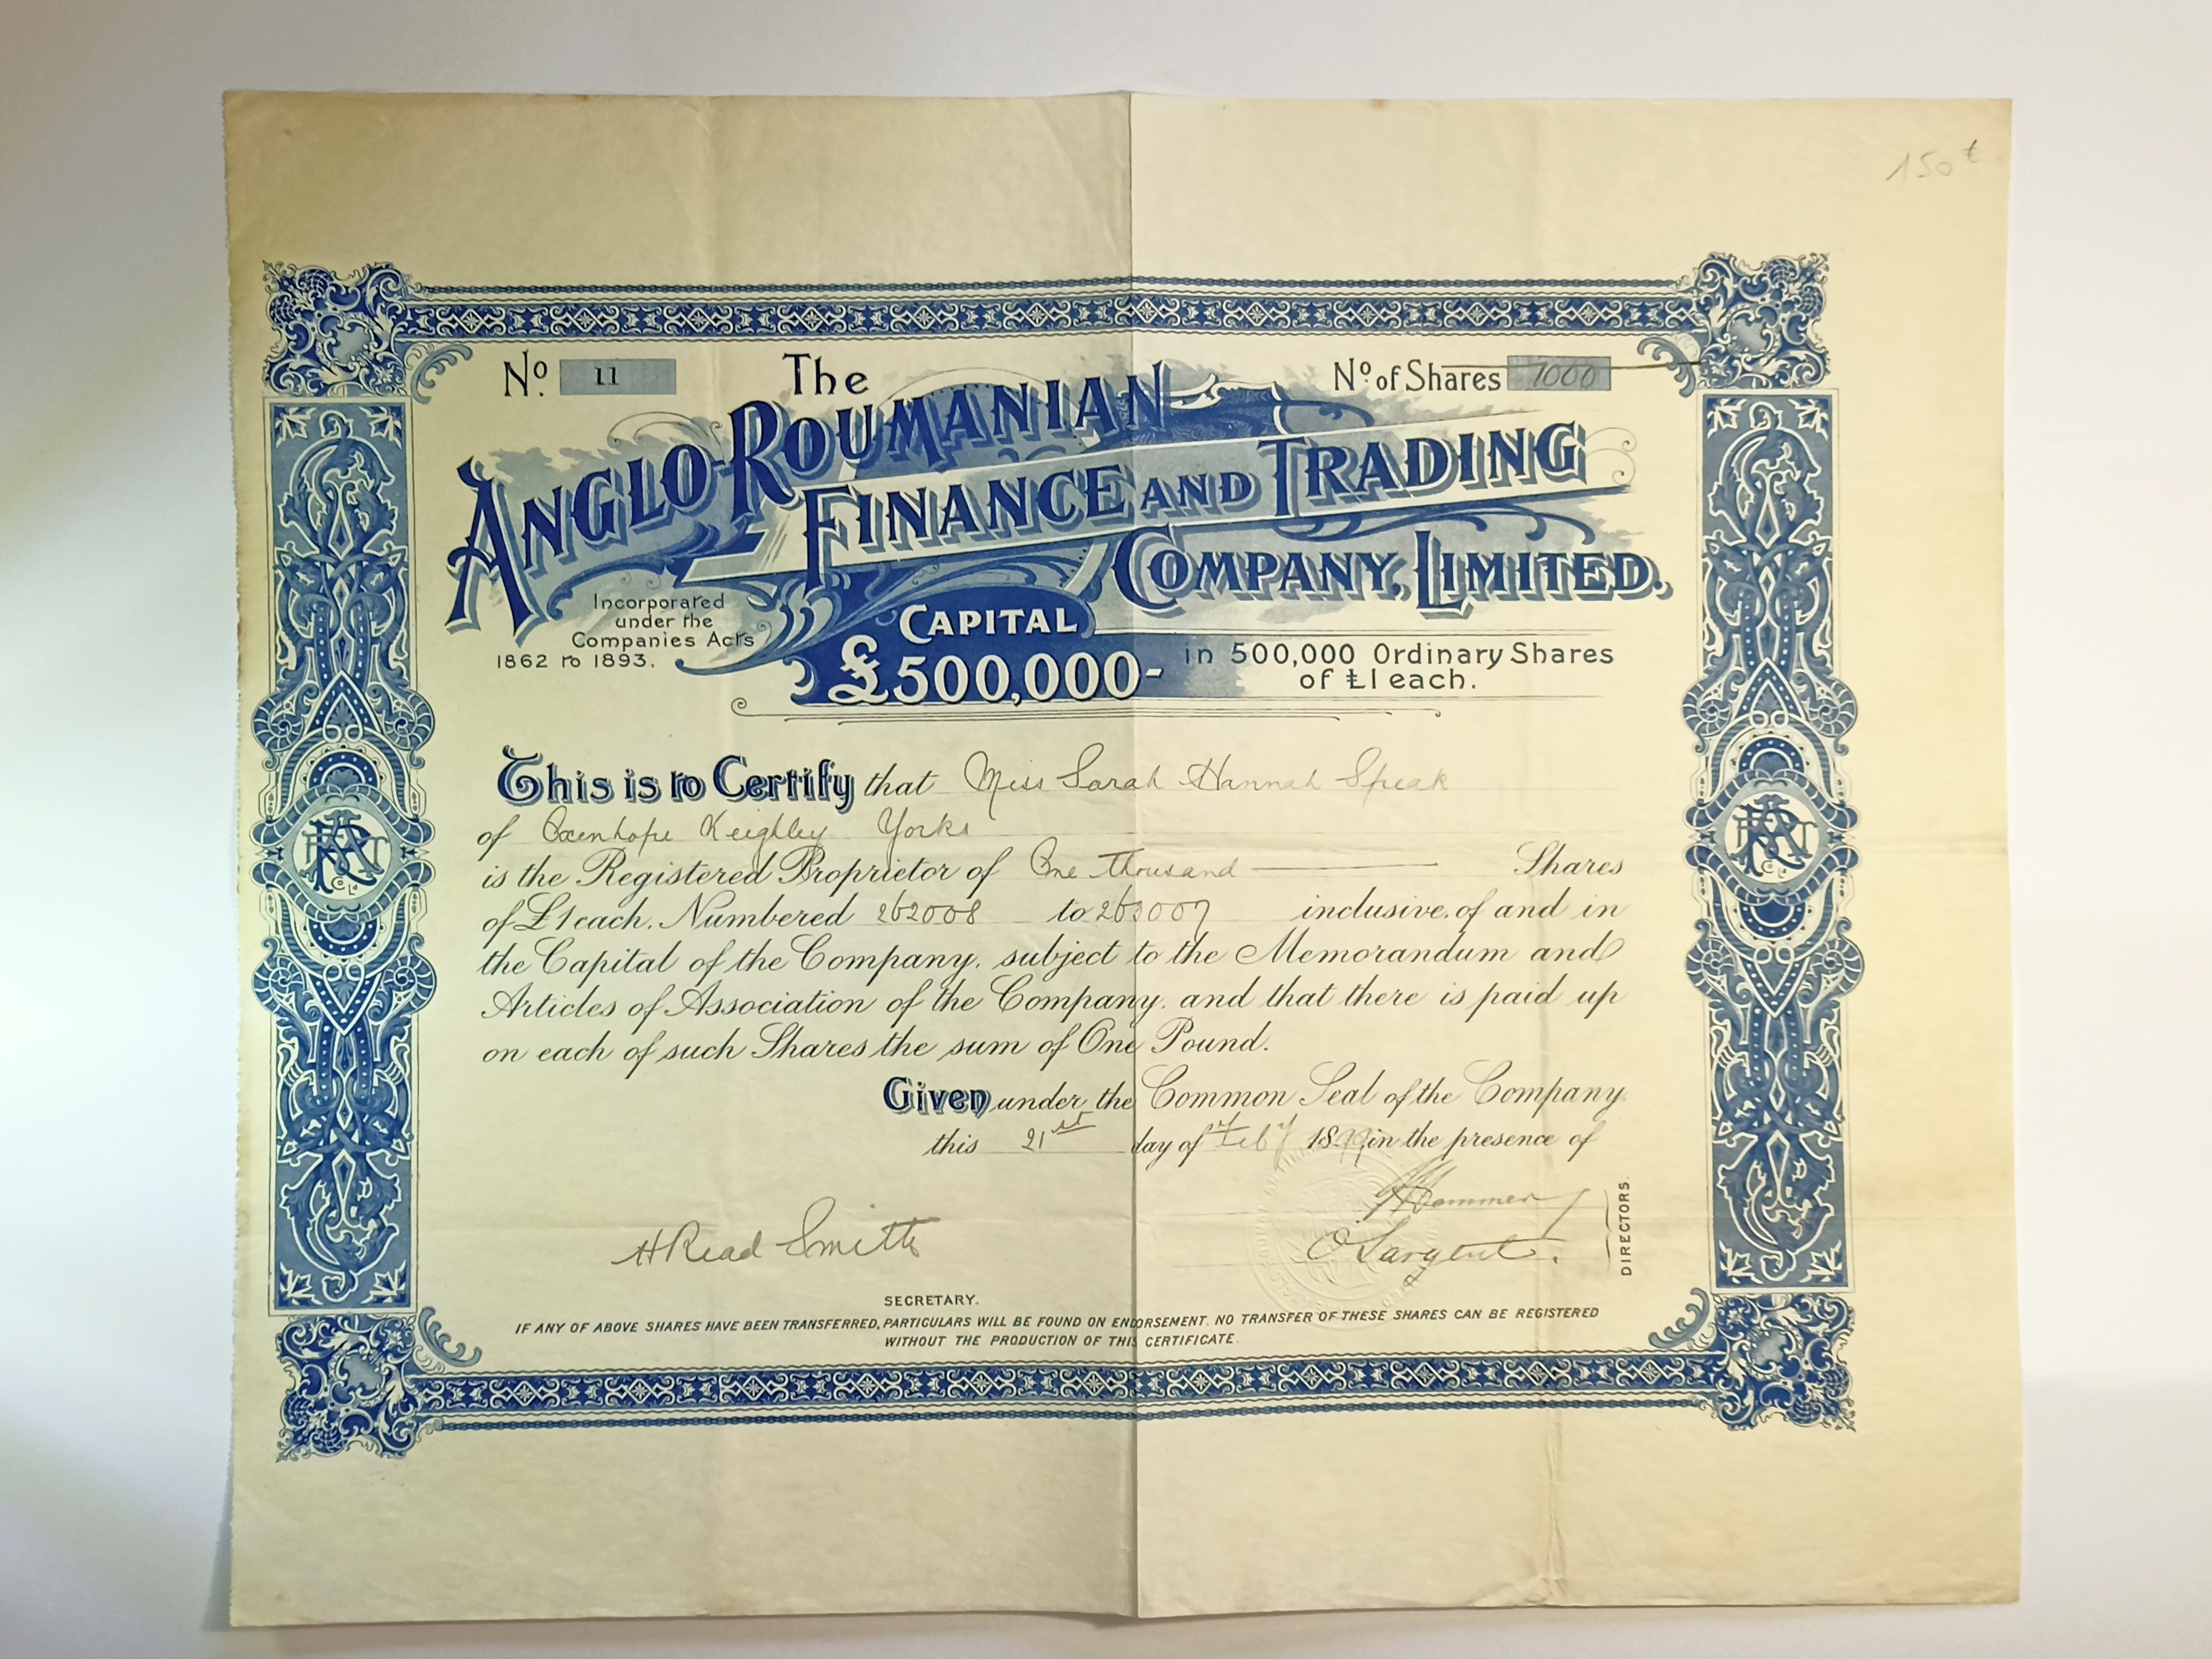 150 €
No. 11
The
No. of Shares 1000
ANGLO-ROUMANIAN
FINANCE AND TRADING
COMPANY, LIMITED.
Incorporated
under the
Companies Acts
1862 to 1893.
CAPITAL
£500,000-
in 500,000 Ordinary Shares
of £1 each.
This is to Certify that Miss Sarah Hannah Speak
of Oxenhope Keighley Yorks
is the Registered Proprietor of One thousand Shares
of £1 each, Numbered 262008 to 263007 inclusive, of and in
the Capital of the Company, subject to the Memorandum and
Articles of Association of the Company, and that there is paid up
on each of such Shares the sum of One Pound.
Given under the Common Seal of the Company
this 21st day of Feby 1899 in the presence of
H Read Smith
O Sargent.
DIRECTORS.
SECRETARY.
IF ANY OF ABOVE SHARES HAVE BEEN TRANSFERRED, PARTICULARS WILL BE FOUND ON ENDORSEMENT. NO TRANSFER OF THESE SHARES CAN BE REGISTERED
WITHOUT THE PRODUCTION OF THIS CERTIFICATE.